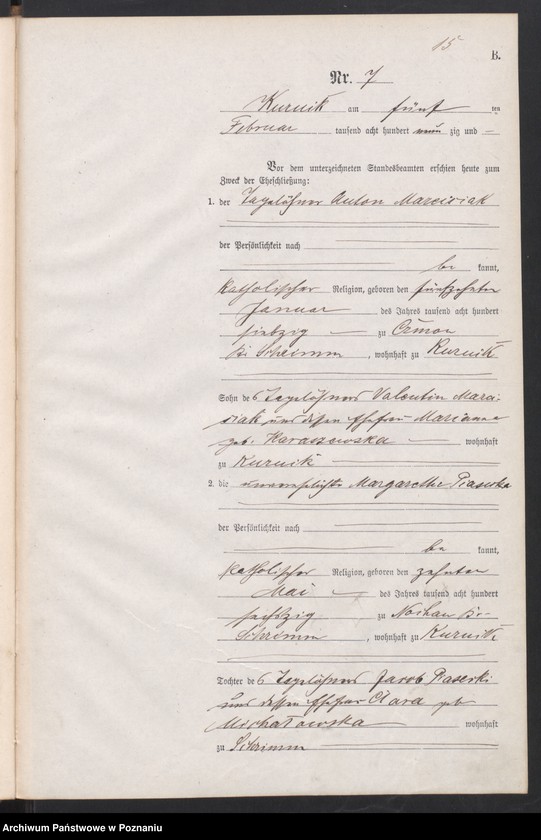 15
B.
Nr. 7
Kurnik am fünf ten
Februar tausend acht hundert neun zig und —
Vor dem unterzeichneten Standesbeamten erschien heute zum
Zweck der Eheschließung:
1. der Tagelöhner Anton Marcisiak
der Persönlichkeit nach
be kannt,
katholischer Religion, geboren den fünfzehnten
Januar des Jahres tausend acht hundert
siebzig zu Czmon
bei Schrimm, wohnhaft zu Kurnik
Sohn des Tagelöhners Valentin Marci-
siak und dessen Ehefrau Marianna
geb. Karaszewska wohnhaft
zu Kurnik
2. die unverehelichte Margarethe Piasecka
der Persönlichkeit nach
be kannt,
katholischer Religion, geboren den zehnten
Mai des Jahres tausend acht hundert
sechszig zu Nochau Kr.
Schrimm, wohnhaft zu Kurnik
Tochter des Tagelöhners Jacob Piasecki
und dessen Ehefrau Clara geb
Michałowska wohnhaft
zu Schrimm
Archiwum Państwowe w Poznaniu